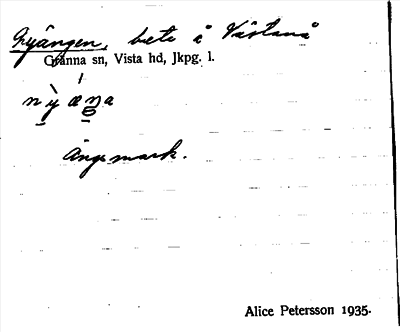 Nyängen, bete å Västanå
Gränna sn, Vista hd, Jkpg. l.
Ängsmark.
Alice Petersson 1935.